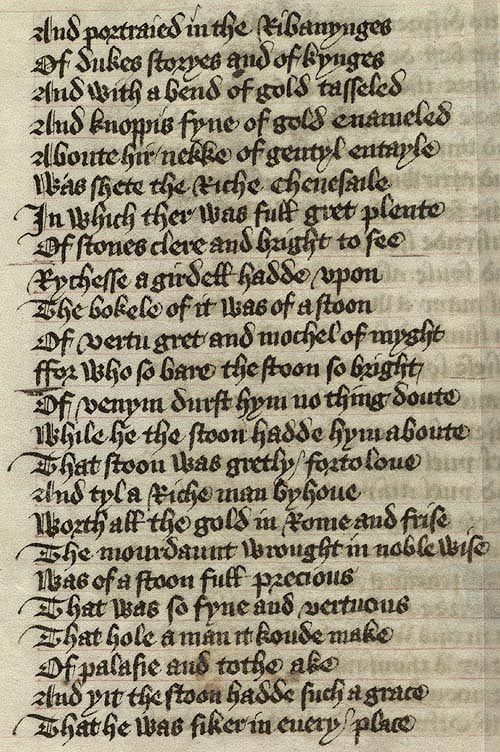 And portraied in the Ribanynges
Of dukes storyes and of kynges
And with a bend of gold tasseled
And knoppis fyne of gold enameled
Aboute hir nekke of gentyl entayle
Was shete the Riche cheuesaile
In which ther was full gret plente
Of stones clere and bright to see
Rychesse a girdell hadde vpon
The bokele of it was of a stoon
Of vertu gret and mochel of myght
ffor who so bare the stoon so bright
Of venym durst hym no thing doute
While he the stoon hadde hym aboute
That stoon was gretly / forto loue
And tyl a Riche man byhoue
Worth all the gold in Rome and frise
The mourdaunt wrought in noble wise
Was of a stoon full precious
That was so fyne and vertuous
That hole a man it koude make
Of palasie and tothe ake
And yit the stoon hadde such a grace
That he was siker in euery / place